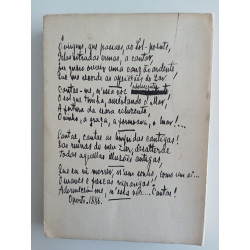 Ó virgens, que passaes, ao Sol-poente,
Pelas estradas ermas, a cantar,
Eu quero ouvir uma canção ardente,
Que me transporte ao meu perdido Lar.
Cantae-me, n'essa voz
O sol que tomba, aureolando o Mar,
A fartura da seara reluzente,
O vinho, a graça, a formosura, o luar!...
Cantae, cantae as
Das ruinas do meu Lar, desaterrae
Todas aquellas illusões antigas,
Que eu vi morrer, n'um sonho, como um ai...
Ó suaves e frescas raparigas,
Adormecei-me, n'essa voz... Cantae!
Porto, 1886.